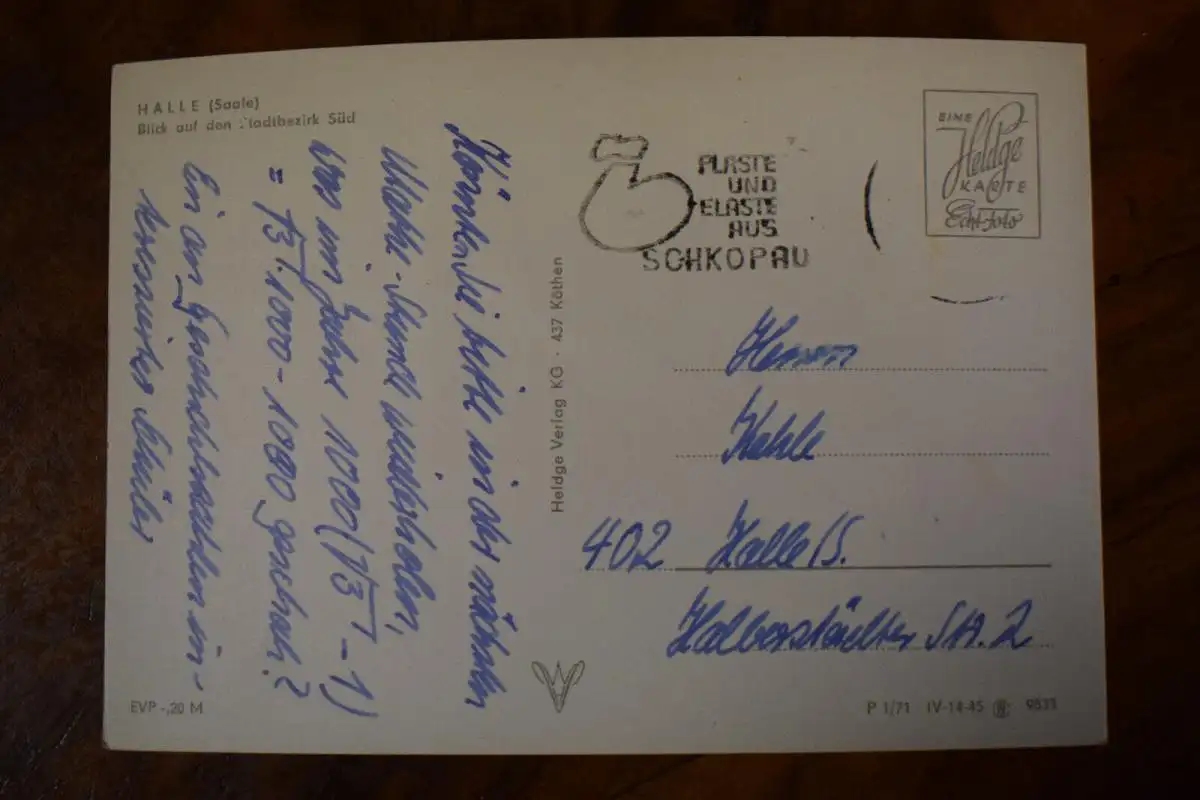 HALLE (Saale)
Blick auf den Stadtbezirk Süd
Können Sie bitte in der nächsten
Mathe-Stunde wiederholen,
was im Jahre 1000(√3 - 1)
= √3 · 1000 - 1000 geschah?
Ein am Geschichtsleben in-
teressierter Schüler
EVP -,20 M
Heldge Verlag KG · 437 Köthen
PLASTE
UND
ELASTE
AUS
SCHKOPAU
EINE
Heldge
KARTE
Echt-Foto
Herrn
Kahle
402 Halle/S.
Halberstädter Str. 2
P 1/71 IV-14-45 9833